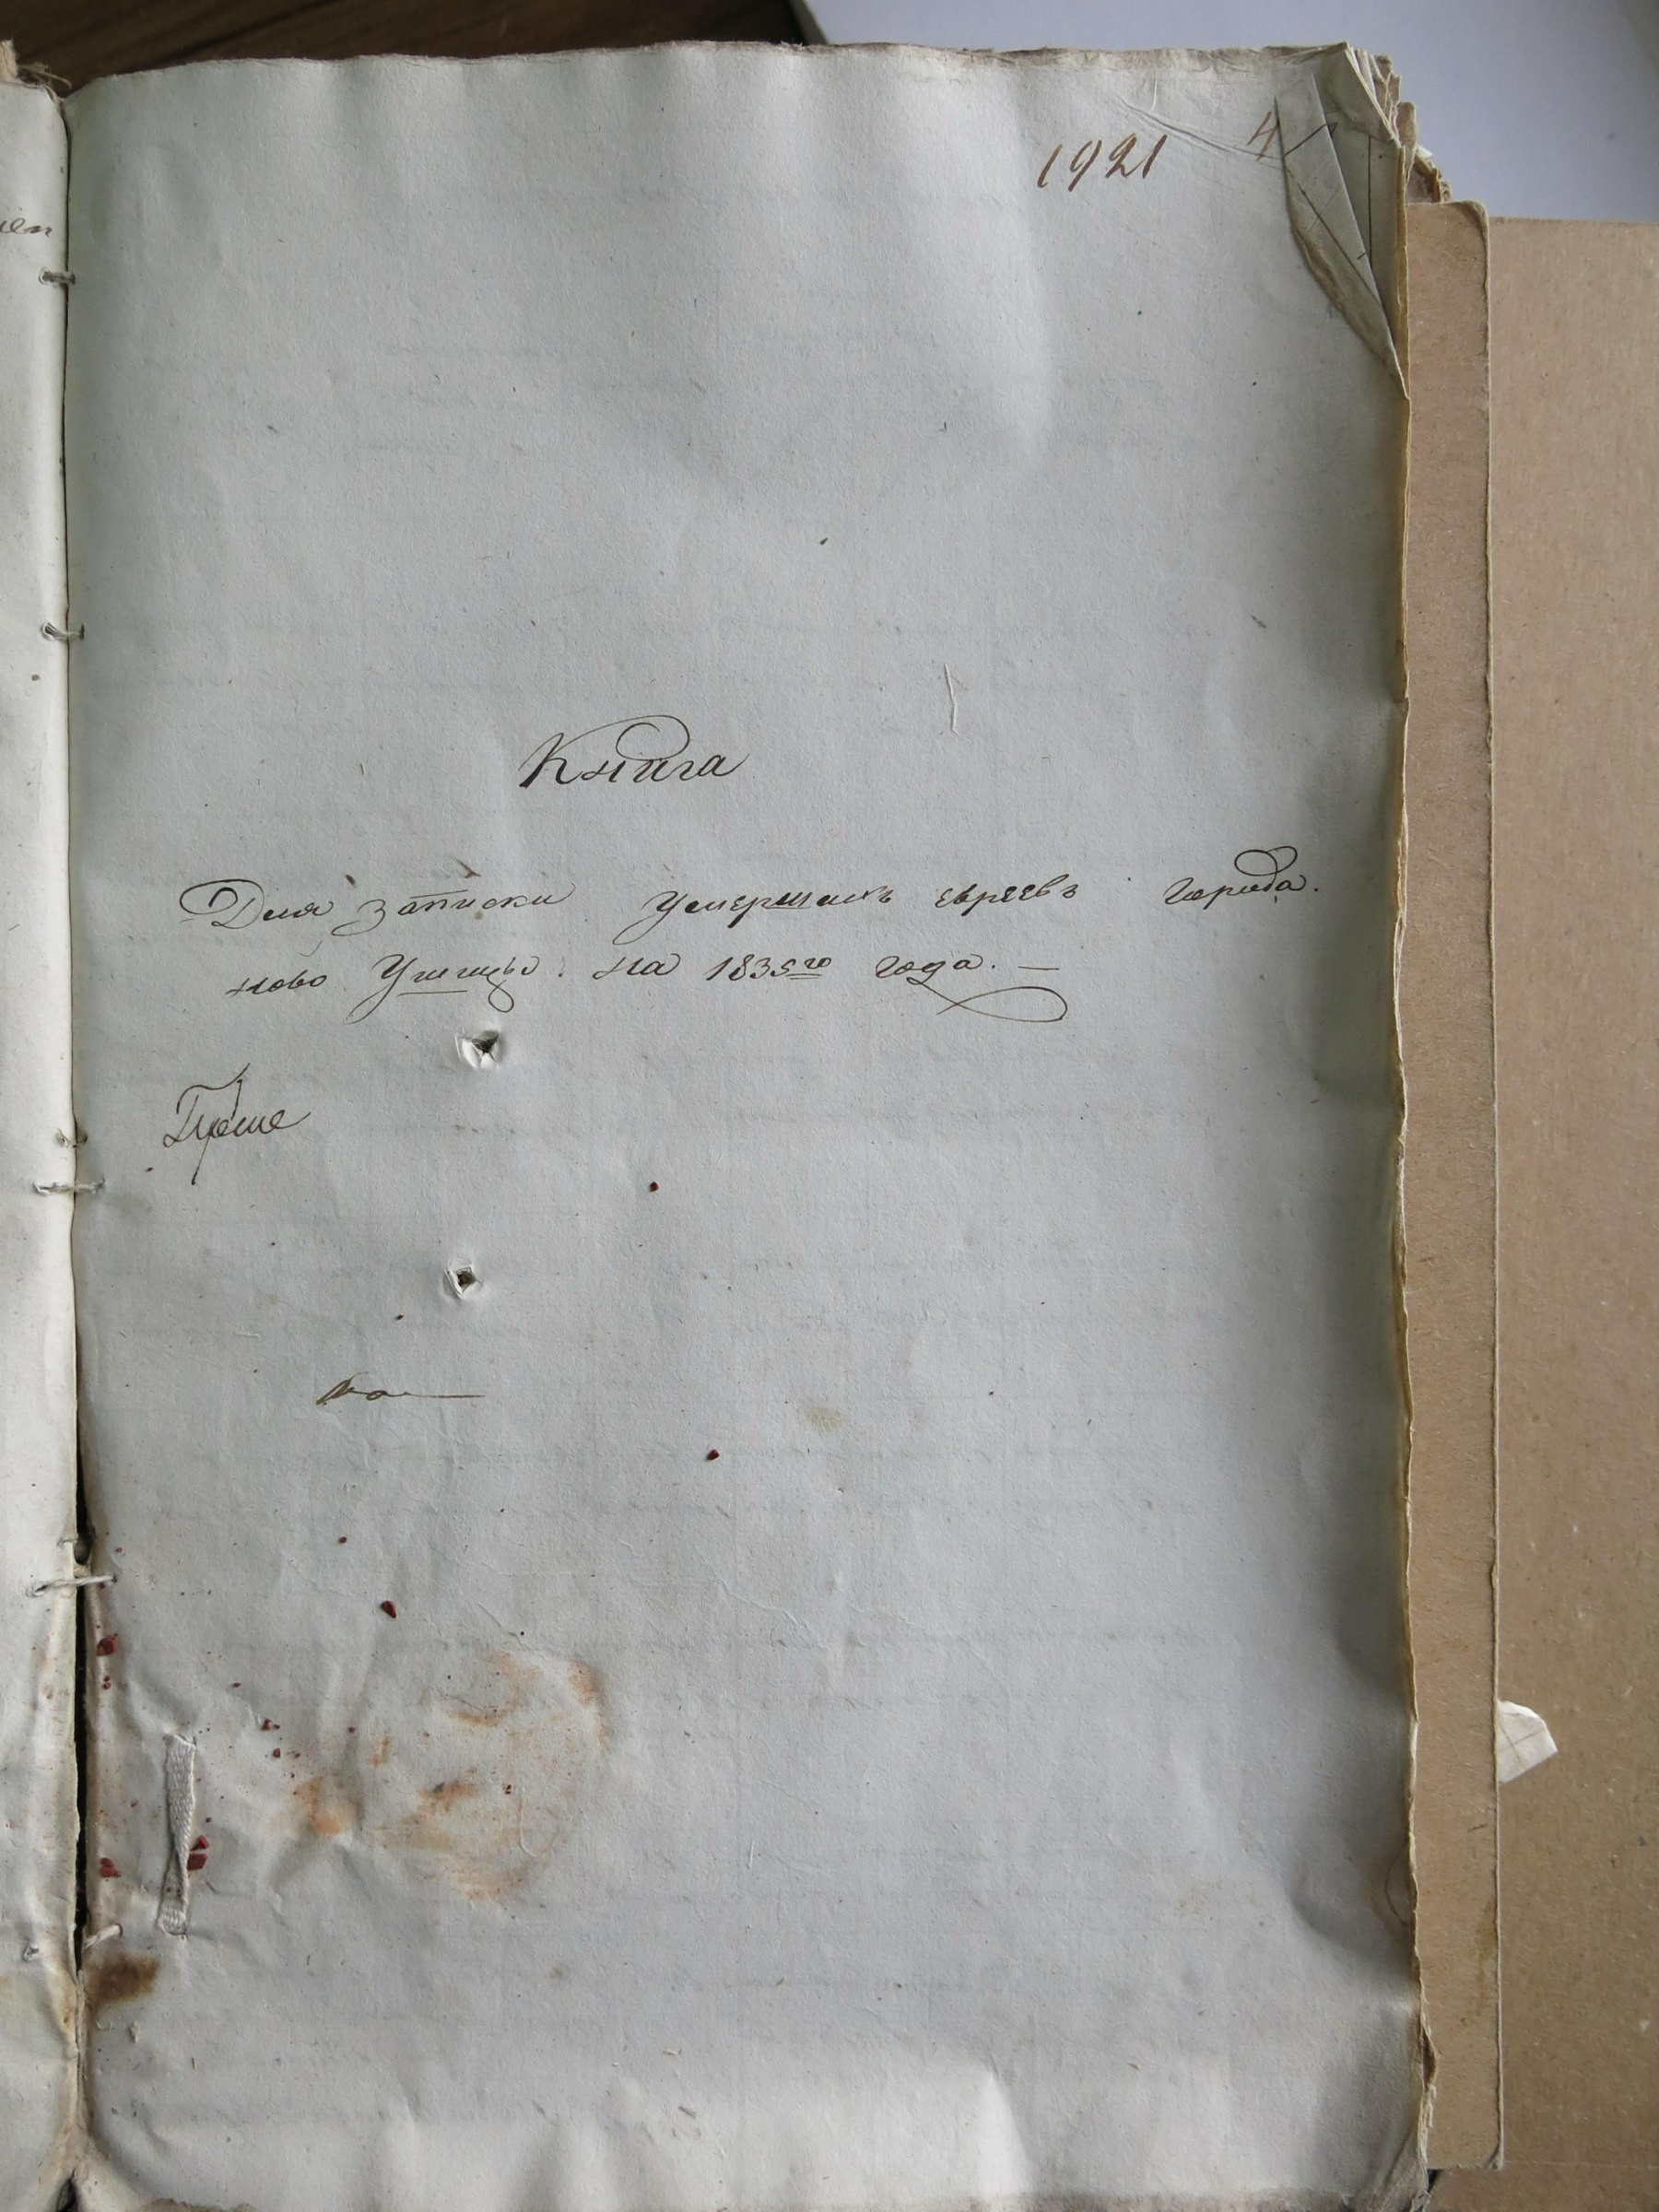 1921 4
Книга
Для записки умершихъ евреевъ города.
ново Ушицы. на 1835го года. —